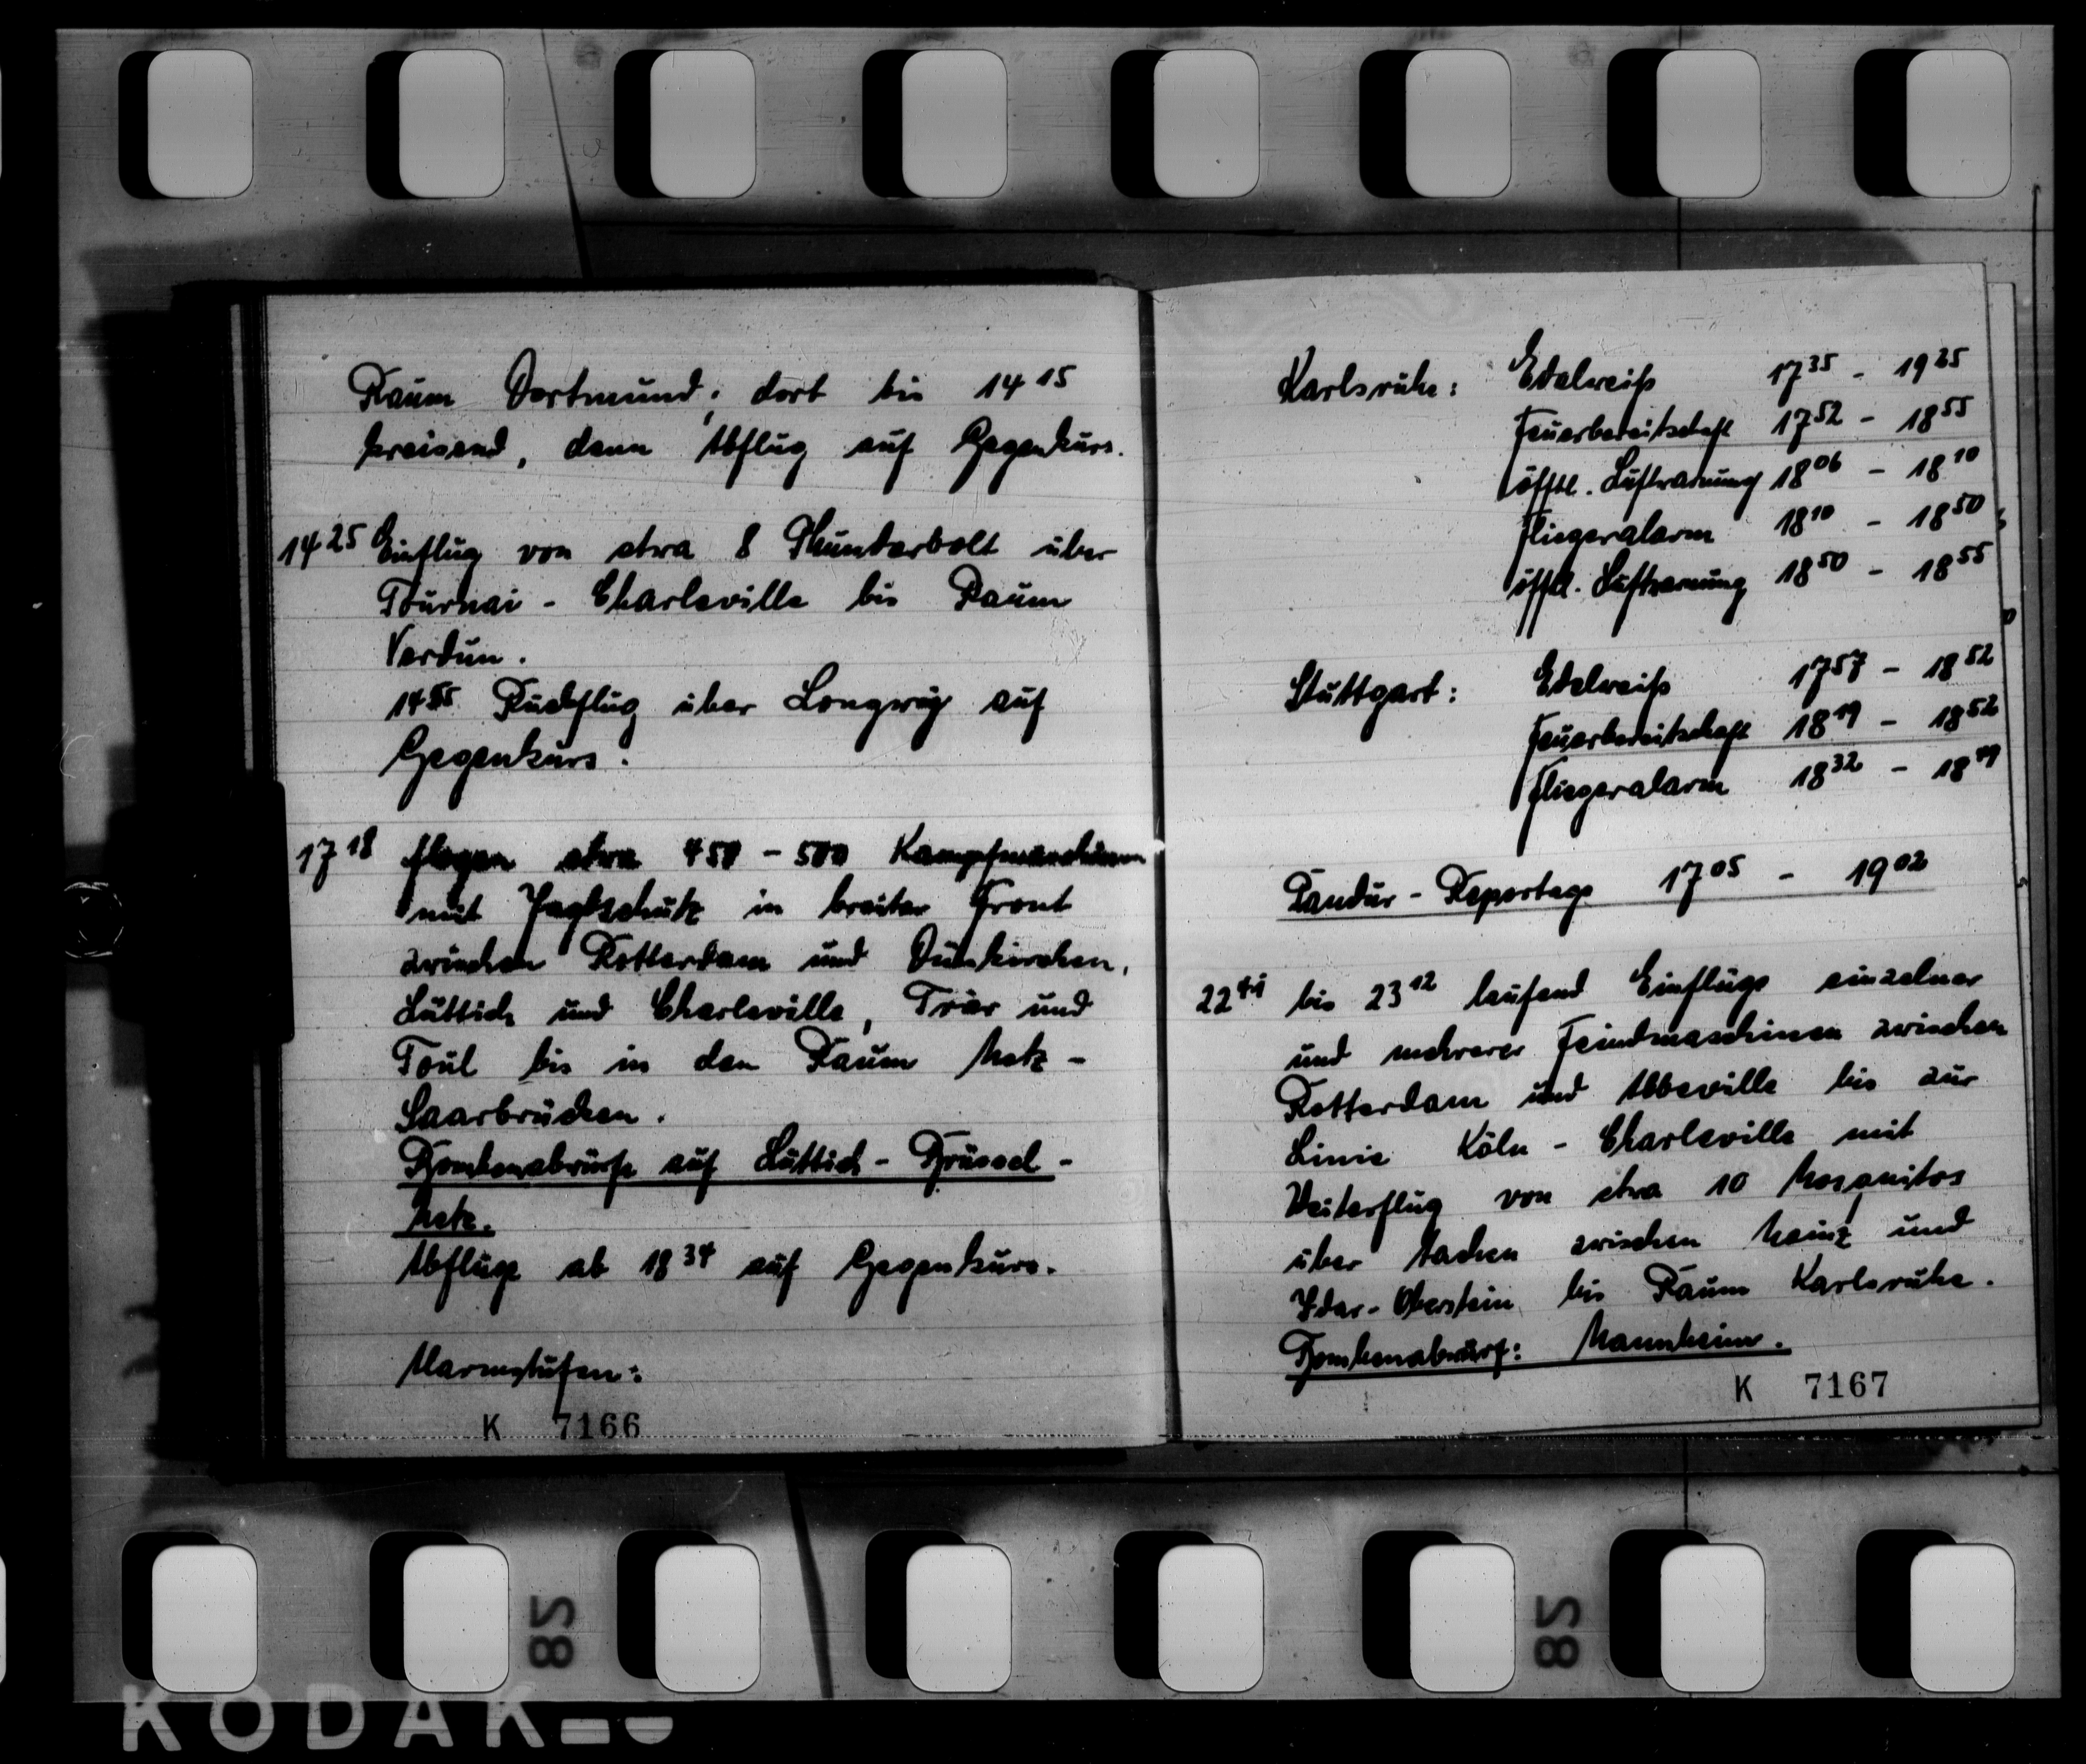 Raum Dortmund; dort bis 14 15
kreisend, dann Abflug auf Gegenkurs.
14 25 Einflug von etwa 8 Thunderbolt über
Tournai - Charleville bis Raum
Verdun.
14 55 Rückflug über Longwy auf
Gegenkurs.
17 18 flogen etwa 450 - 500 Kampfmaschinen
mit Jagdschutz in breiter Front
zwischen Rotterdam und Dünkirchen,
Lüttich und Charleville, Trier und
Toul bis in den Raum Metz -
Saarbrücken.
Bombenabwürfe auf Lüttich - Brüssel -
Metz.
Abflüge ab 18 34 auf Gegenkurs.
Alarmstufen:
K 7166
Karlsruhe: Edelweiß 17 35 - 19 25
Feuerbereitschaft 17 52 - 18 55
öfftl. Luftwarnung 18 06 - 18 10
Fliegeralarm 18 10 - 18 50
öfftl. Luftwarnung 18 50 - 18 55
Stuttgart: Edelweiß 17 57 - 18 52
Feuerbereitschaft 18 19 - 18 52
Fliegeralarm 18 32 - 18 49
Pandur - Reportage 17 05 - 19 02
22 44 bis 23 12 laufend Einflüge einzelner
und mehrerer Feindmaschinen zwischen
Rotterdam und Abbeville bis zur
Linie Köln - Charleville mit
Weiterflug von etwa 10 Mosquitos
über Aachen zwischen Mainz und
Idar-Oberstein bis Raum Karlsruhe.
Bombenabwurf: Mannheim.
K 7167
28
28
KODAK